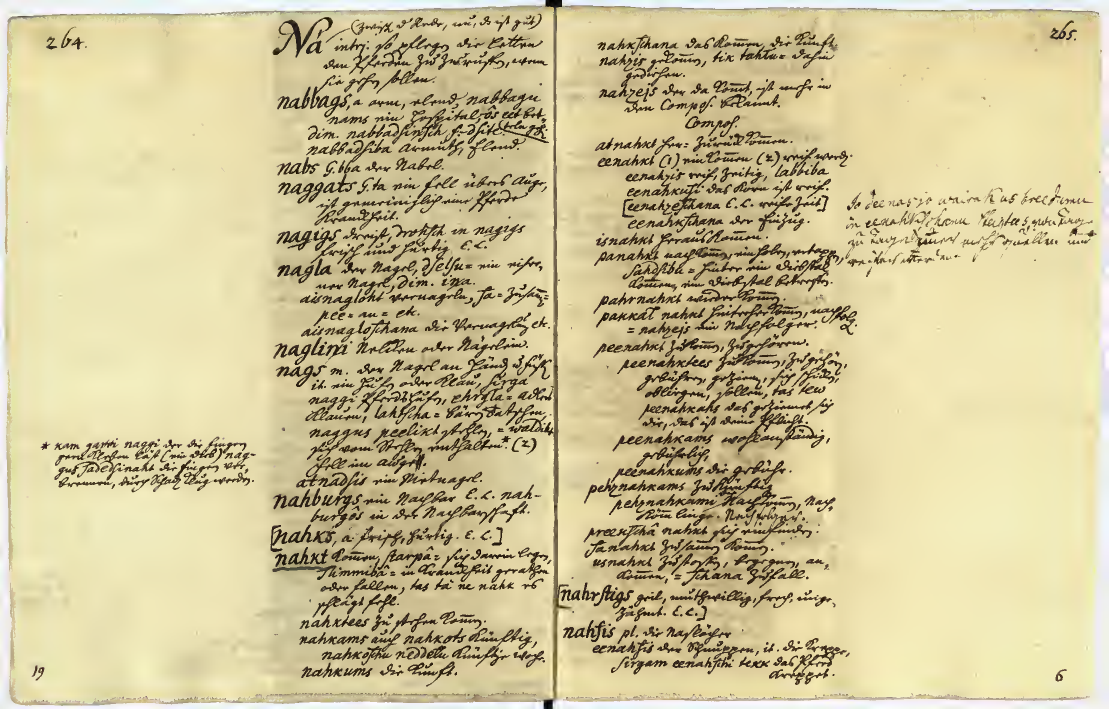 264.
Nà (Zwisch d Rede, nu, da ist gut)
interj. so pflegen die Letten
den Pferden zu zuruffen, wenn
sie gehn sollen.
nabbags, a arm, elend, nabbagu
nams ein Hospital, ôs eet bet-
dim. nabbadsinsch
nabbadsiba Armuth, Elend
nabs G. bba der Nabel.
naggats G. ta ein fell übers Auge,
ist gemeiniglich eine Pferde
Krankheit.
nagigs dreist, drohsch in nagigs
frisch und hurtig E. L.
nagla der Nagel, dselsu = ein eiser-
ner Nagel, dim. ina.
aisnagloht vernageln, sa = zusam-
pee = an = etc.
aisnagloschana die Vernagelung etc.
naglini Nelken oder Nägelein.
nags m. der Nagel an Händ u füß
it. ein Huf oder Klau, sirga
naggi Pferdshufe, ehrgla = adlers
Klauen, lahtscha = Bären Tatzen.
naggus peelikt stehlen, = waldiht
sich vom Stehlen enthalten* (2)
fell im auge.
atnadsis ein Nietnagel.
nahburgs ein Nachbar E. L. nah-
burgôs in der Nachbarschaft.
[nahks, a. frisch, hurtig. E. L.]
nahkt kommen, starpâ = sich darein legen,
slimmibâ = in Krankheit gerathen
oder fallen, tas tà ne nahk es
schlägt fehl.
nahktees zu stehen komm.
nahkams auch nahkots künftig,
nahkoschu neddelu künftige woch.
nahkums die kunft.
* kam garri naggi der die finger
gern kleben läst (ein dieb) nag-
gus sadedsinaht die finger ver-
brennen, durch Schad klug werden.
19
265.
nahkschana das kommen, die kunft.
nahzis gekomm, tik tahlu = dahin
gediehen.
nahzejs der da komt, ist mehr in
den Compos. bekannt.
Compos.
atnahkt her = zurück kommen.
eenahkt (1) ein kommen (2) reif werd.
eenahzis reif, zeitig, labbiba
eenahkusi das Korn ist reif.
[eenahzeschana E. L. reife Zeit]
eenahkschana der Einzug.
isnahkt heraus kommen.
panahkt nachkomm, einholen, ertapp,
sahdsiba = hinter ein Diebstal
kommen, ein Diebstal betreffen.
pahrnahkt wiederkomm.
pakkaļ nahkt hinterher komm, nachfolg
= nahzejs ein Nachfolger.
peenahkt zukomm, zugehören.
peenahktees zukomm, zugehör,
gebühren, geziem, sich schicken,
obliegen, sollen, tas tew
peenahkahs das geziemet sich
dir, das ist deine Pflicht.
peenahkams wohlanständig,
gebührlich,
peenahkums die gebühr.
pehznahkams zukünftig
pehznahkami Nachkomm, Nach-
kömlinge. Nachfolger.
preekschâ nahkt sich einfinden.
sanahkt zusamm komm.
usnahkt zustossen, begegnen, an-
kommen, = schana Zufall.
[nahrstigs geil, muthwillig, frech, unge-
zähmt. E. L.]
nahsis pl. die Naslöcher
eenahsis der Schnuppen, it. die Kröppe,
sirgam eenahschi tekk das Pferd
kröppet.
6